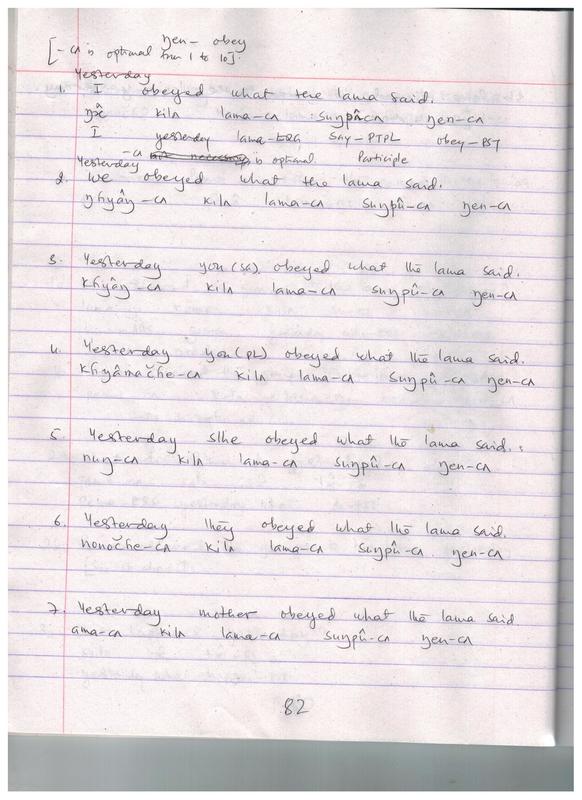 ŋen- obey
[-cʌ is optional from 1 to 10].
Yesterday
1. I obeyed what the lama said.
kilʌ lama-cʌ suŋpû-cʌ ŋen-cʌ
I yesterday lama-ERG SAY-PTPL obey-PST
-cʌ is optional Participle
Yesterday
2. We obeyed what the lama said.
ŋhyâŋ-cʌ kilʌ lama-cʌ suŋpû-cʌ ŋen-cʌ
3. Yesterday you (SG) obeyed what the lama said.
khyâŋ-cʌ kilʌ lama-cʌ suŋpû-cʌ ŋen-cʌ
4. Yesterday you (PL) obeyed what the lama said.
khyâmače-cʌ kilʌ lama-cʌ suŋpû-cʌ ŋen-cʌ
5. Yesterday s/he obeyed what the lama said.
nuŋ-cʌ kilʌ lama-cʌ suŋpû-cʌ ŋen-cʌ
6. Yesterday they obeyed what the lama said.
nonočhe-cʌ kilʌ lama-cʌ suŋpû-cʌ ŋen-cʌ
7. Yesterday mother obeyed what the lama said.
ama-cʌ kilʌ lama-cʌ suŋpû-cʌ ŋen-cʌ
82